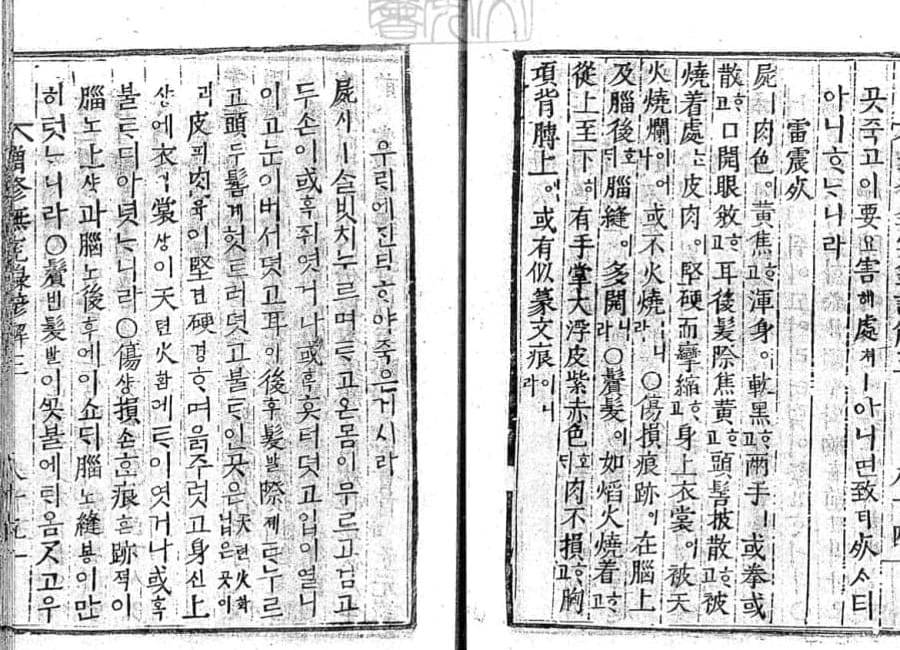 곳죽고이要요害해處쳐ㅣ아니면致티死ᄉᆞ티
아니ᄒᆞᄂᆞ니라
雷震死
屍ㅣ肉色이黃焦ᄒᆞ고渾身이軟黑ᄒᆞ고兩手ㅣ或拳或
散ᄒᆞ고口開眼㪍ᄒᆞ고耳後髮際焦黃ᄒᆞ고頭髻披散ᄒᆞ고被
燒着處ᄂᆞᆫ皮肉이堅硬而攣縮ᄒᆞ고身上衣裳이被天
火燒爛이어나或不火燒ᄒᆞ니라○傷損痕跡이在腦上
及腦後호ᄃᆡ腦縫이多開ᄒᆞ니라○鬢髮이如焰火燒着ᄒᆞ고
從上至下히有手掌大浮皮紫赤色호ᄃᆡ肉不損ᄒᆞ고胸
項背膊上애或有似篆文痕이니라
우레에진타ᄒᆞ야죽은거시라
屍시ㅣ살빗치누르며ᄐᆞ고온몸이무르고검고
두손이或혹쥐엿거나或혹훗터뎟고입이열니
이고눈이버서뎟고耳이後후髮발際졔ᄐᆞ누르
고頭두髻계헛트러뎟고불ᄐᆞ인곳은天텬火화닙은곳이
皮피肉육이堅견硬경ᄒᆞ며읅주럿고身신上
샹에衣의裳샹이天텬火화에ᄐᆞ이엿거나或혹
불ᄐᆞ디아녓ᄂᆞ니라○傷샹損손ᄒᆞᆫ痕흔跡젹이
腦노上샹과腦노後후에이쇼ᄃᆡ腦노縫봉이만
히텃ᄂᆞ니라○鬢빈髮발이불에ᄐᆡ옴ᄀᆞᆺ고우
增修無冤錄諺解三